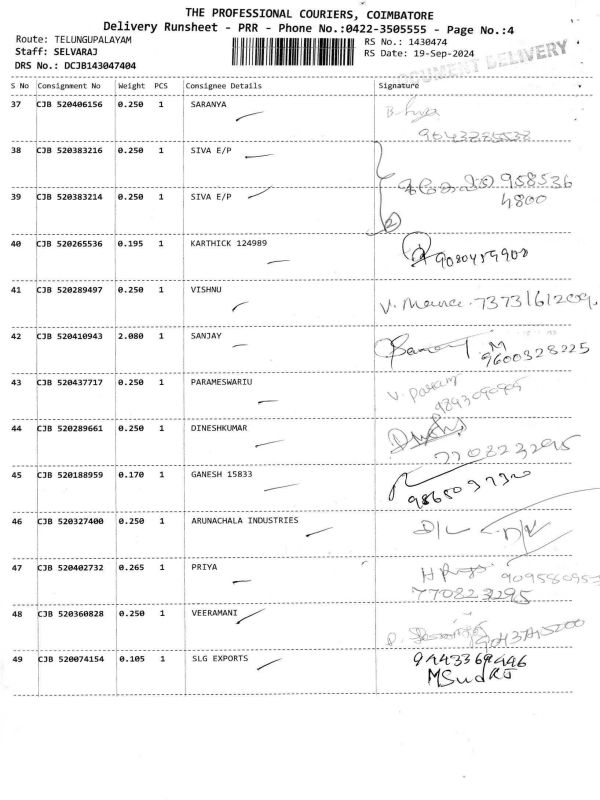 THE PROFESSIONAL COURIERS, COIMBATORE
Delivery Runsheet - PRR - Phone No.:0422-3505555 - Page No.:4
Route: TELUNGUPALAYAM
Staff: SELVARAJ
DRS No.: DCJB143047404
RS No.: 1430474
RS Date: 19-Sep-2024
DOCUMENT DELIVERY
S No Consignment No Weight PCS Consignee Details Signature
37 CJB 520406156 0.250 1 SARANYA
38 CJB 520383216 0.250 1 SIVA E/P
958536
4800
39 CJB 520383214 0.250 1 SIVA E/P
2
40 CJB 520265536 0.195 1 KARTHICK 124989
41 CJB 520289497 0.250 1 VISHNU
V. 7373161209
42 CJB 520410943 2.080 1 SANJAY
M
9600328225
43 CJB 520437717 0.250 1 PARAMESWARIU
V. Param
44 CJB 520289661 0.250 1 DINESHKUMAR
7708223295
45 CJB 520188959 0.170 1 GANESH 15833
9865037320
46 CJB 520327400 0.250 1 ARUNACHALA INDUSTRIES
D/L
47 CJB 520402732 0.265 1 PRIYA
7708223295
48 CJB 520360828 0.250 1 VEERAMANI
49 CJB 520074154 0.105 1 SLG EXPORTS
9443369446